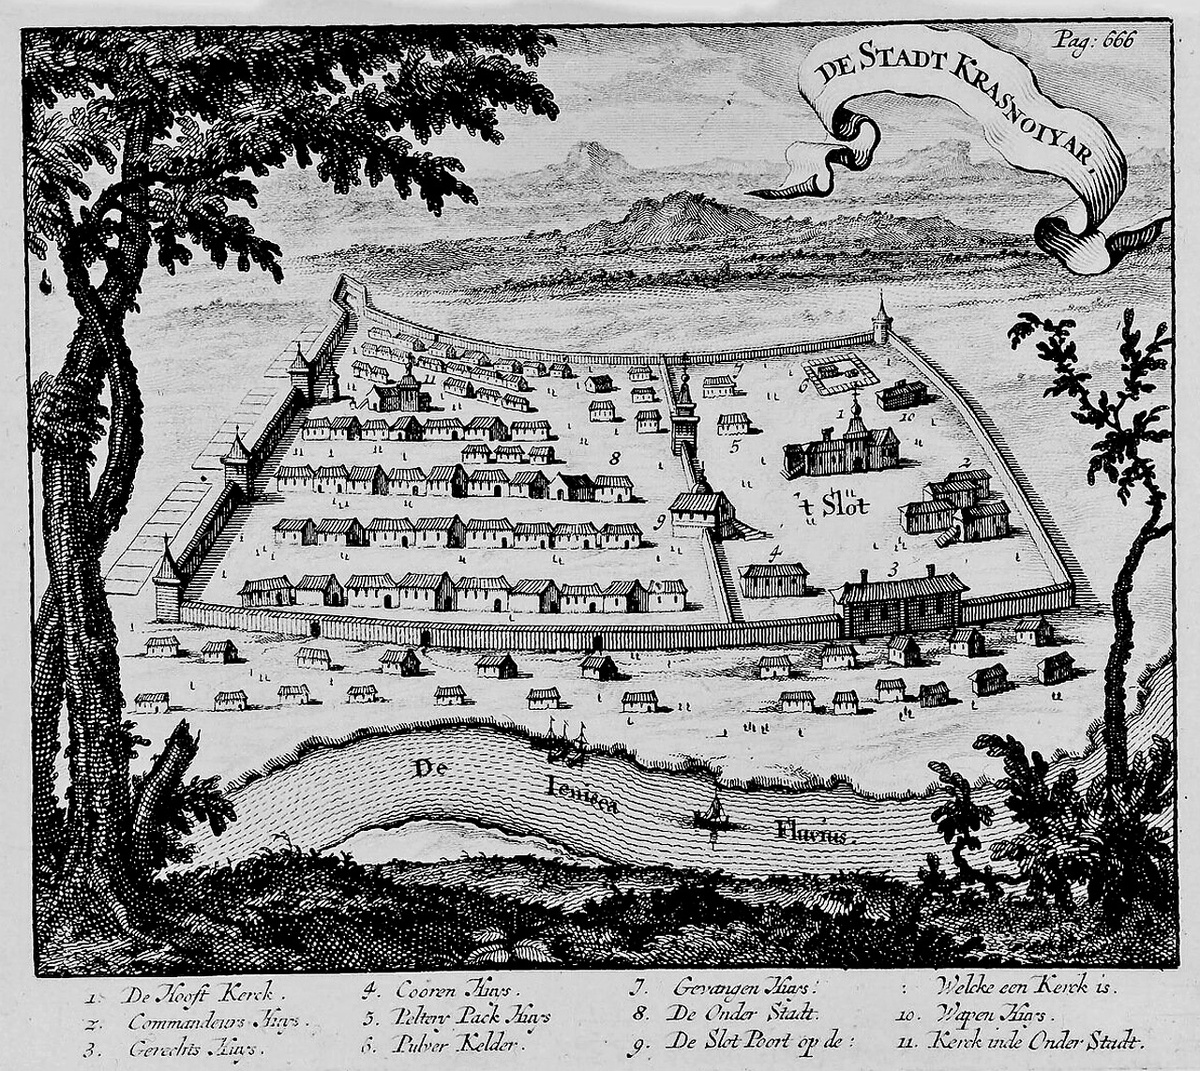 Pag: 666
DE STADT KRASNOIYAR,
6
1
10
5
8
2
't Slot
9
4
3
De Ienisea Fluvius.
1. De Hooft Kerck.
2. Commandeurs Huys.
3. Gerechts Huys.
4. Cooren Huys.
5. Peltery Pack Huys
6. Pulver Kelder.
7. Gevangen Huys.
8. De Onder Stadt.
9. De Slot Poort op de :
: Welcke een Kerck is.
10. Wapen Huys.
11. Kerck inde Onder Stadt.